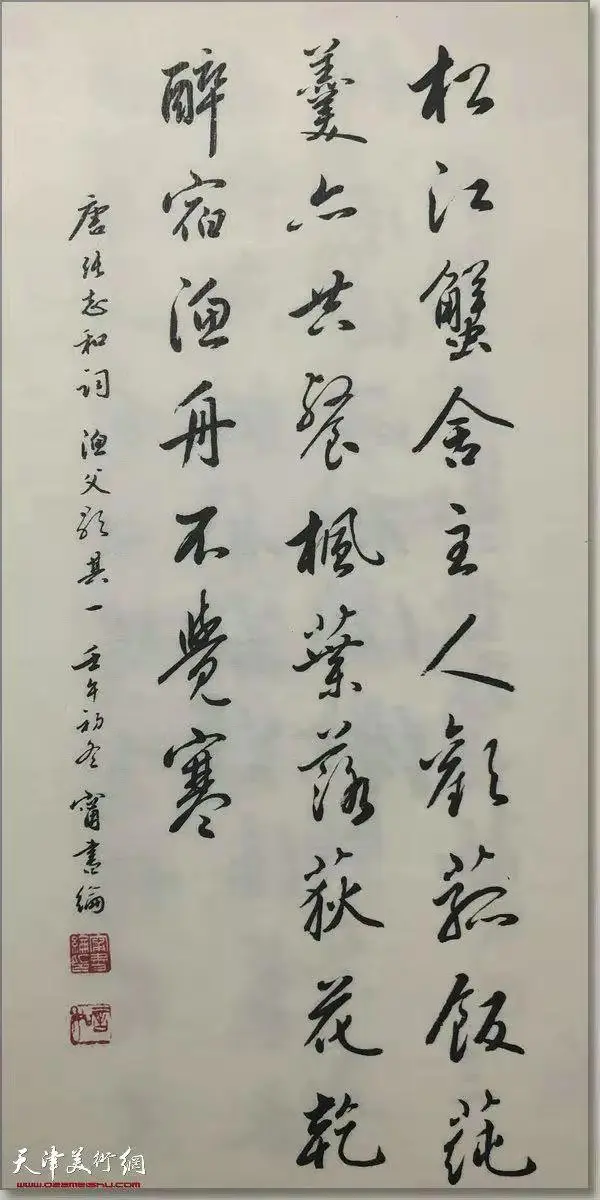 松江蟹舍主人歡菰飯蒓
羹亦共餐楓葉落荻花乾
醉宿漁舟不覺寒
唐張志和詞 漁父歌其一 壬午初冬 甯書綸
天津美術網
www.022meishu.com